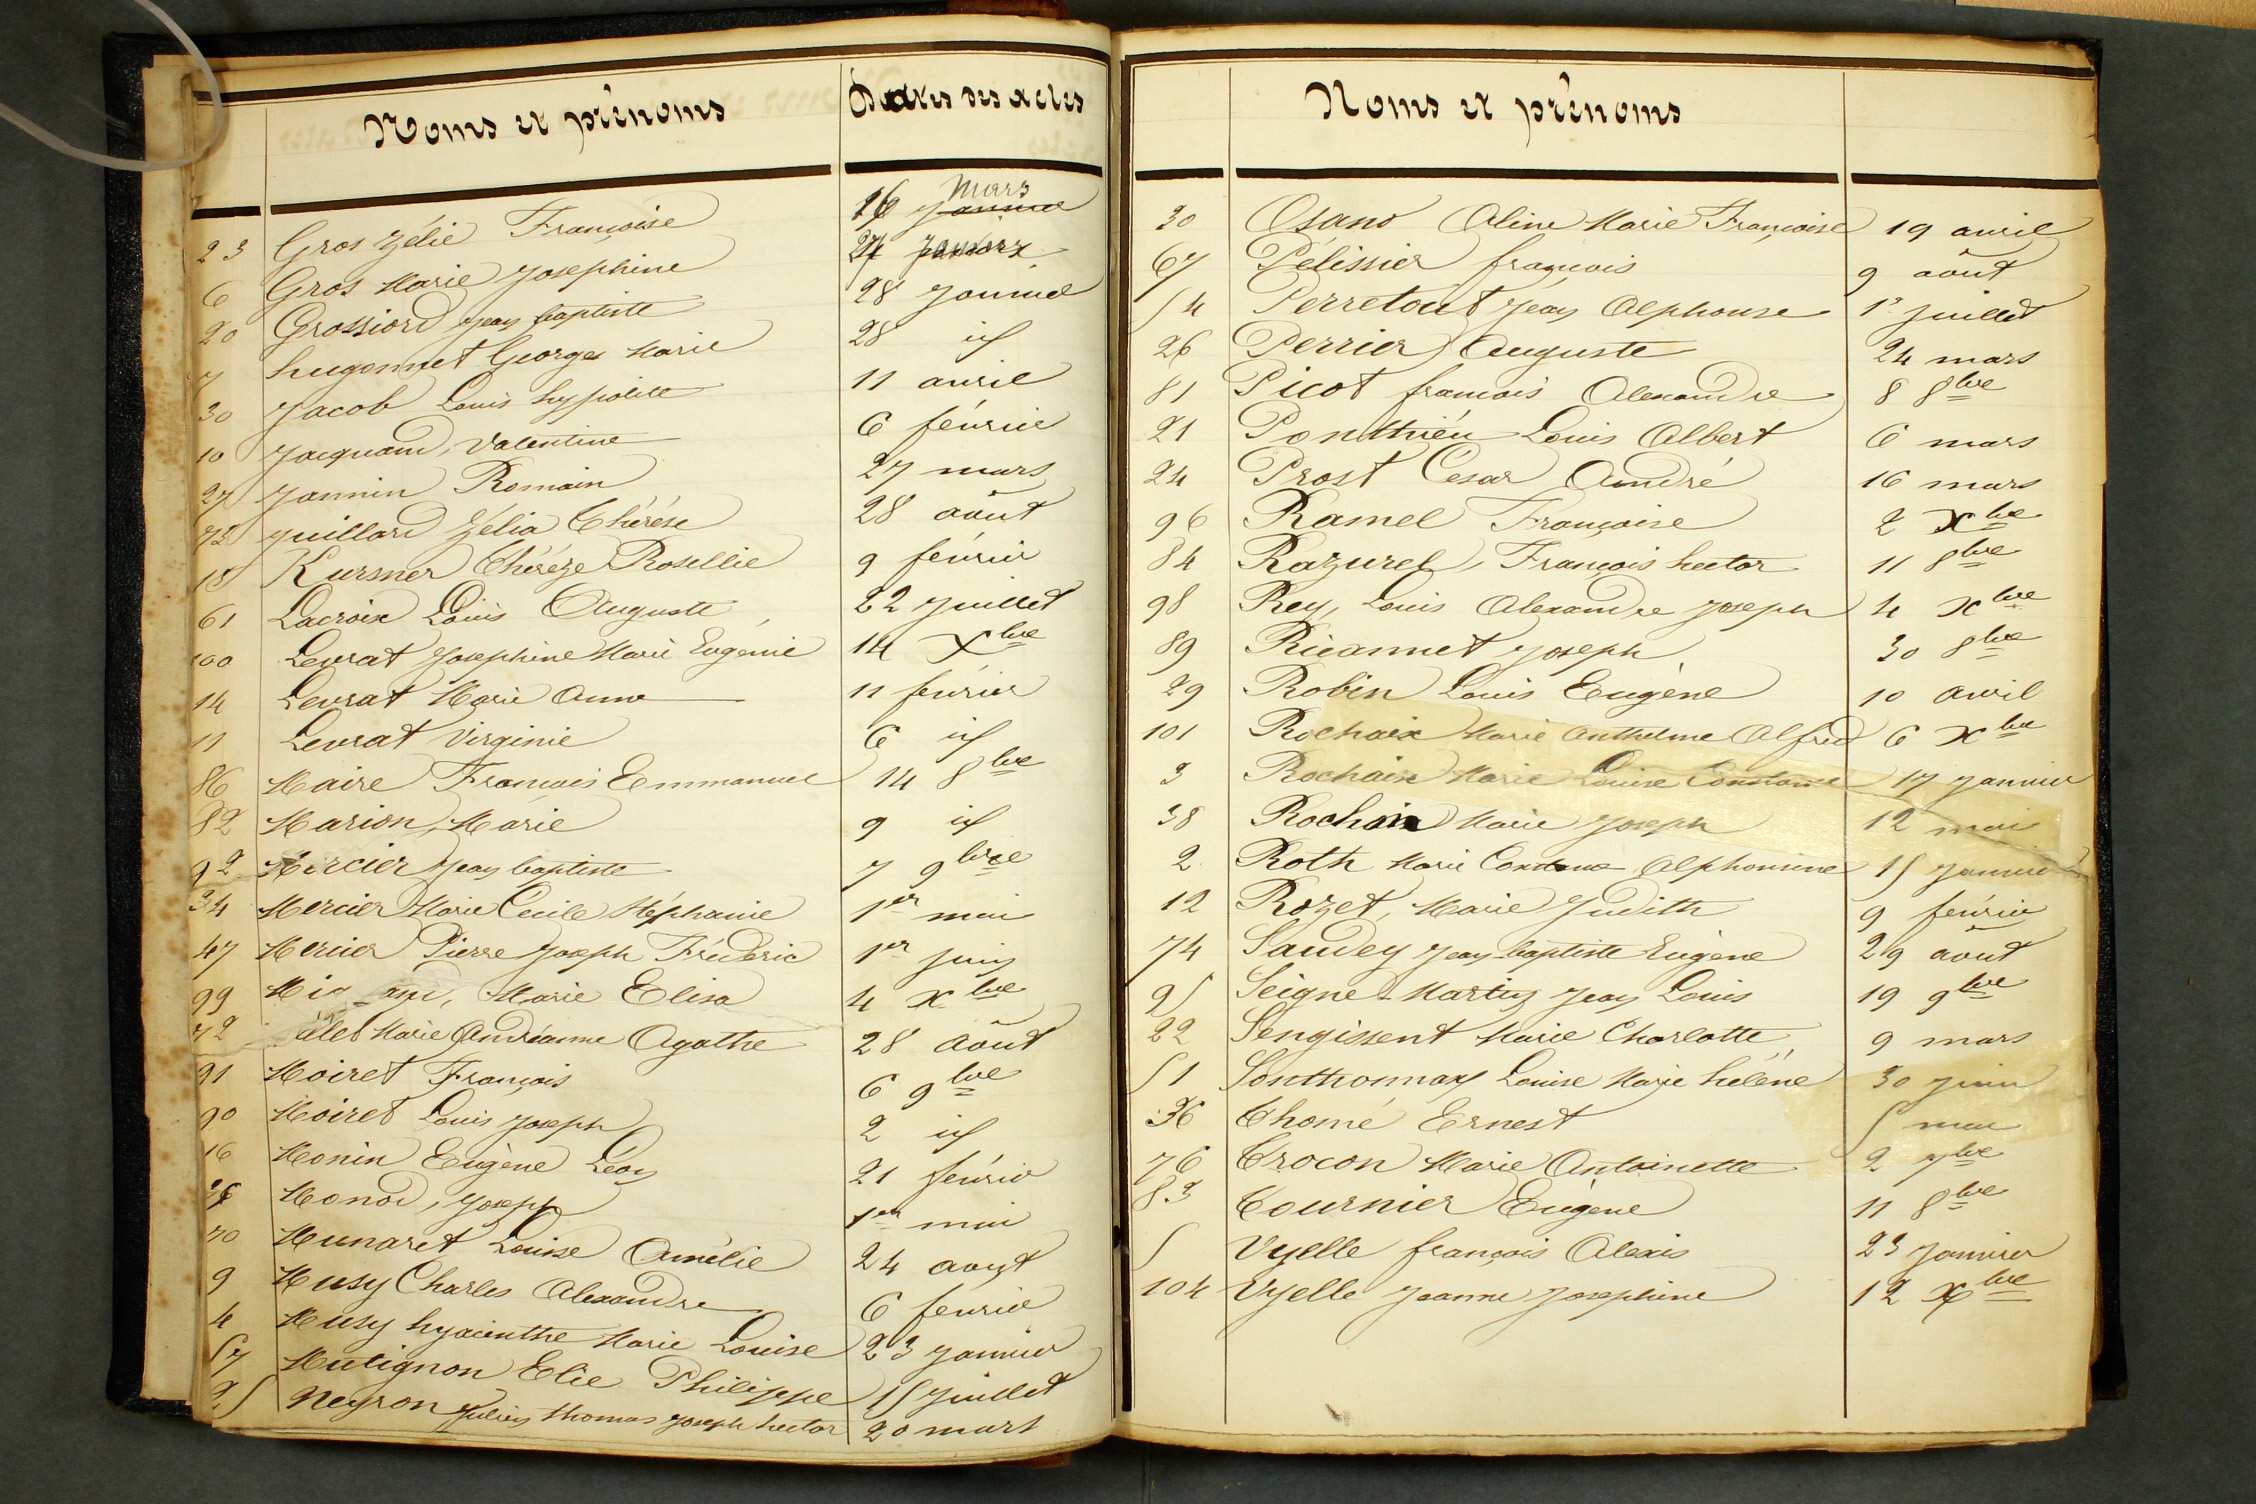 Noms et prénoms Dates des actes
23 Gros Zélie Françoise 16 mars
6 Gros Marie Josephine 24 Janvier
20 Grossiord Jean baptiste 28 Janvier
7 hugonnet Georges Marie 28 id
30 Jacob Louis hypolite 11 avril
10 Jacquand, Valentine 6 février
27 Jannin Romain 27 mars
73 Juillard Zélia Thérése 28 aôut
18 Kursner Théréze Rosellie 9 février
61 Lacroix Louis Auguste 22 Juillet
100 Levrat Josephine Marie Eugénie 14 Xbre
14 Levrat Marie Anne 11 février
11 Levrat Virginie 6 id
86 Maire François Emmanuel 14 8bre
82 Marion, Marie 9 id
92 Mercier Jean baptiste 7 9bre
34 Mercier Marie Cecile Stéphanie 1er mai
47 Mercier Pierre Joseph Fréderic 1er juin
99 Marie Elisa 4 xbre
72 Marie Andréanne Agathe 28 Aôut
91 Moiret François 6 9bre
90 Moiret Louis Joseph 2 id
16 Monin Eugène Léon 21 février
Monod, Joseph 1er mai
70 Munaret Louise Amélie 24 aout
9 Musy Charles Alexandre 6 février
4 Musy hyacinthe Marie Louise 23 Janvier
57 Mutignon Elie Philippe 15 Juillet
25 Neyron Julien thomas Joseph hector 20 mars
Noms et prénoms
30 Osano Aline Marie Françoise 19 avril
67 Pélissier françois 9 aôut
54 Perretout Jean Alphonse 1r Juillet
26 Perrier Auguste 24 mars
81 Picot francois Alexandre 8 8bre
21 Ponthiéu Louis Albert 6 mars
24 Prost César André 16 mars
96 Ramel Françoise 2 Xbre
84 Razurel, François hector 11 8bre
98 Rey, Louis Alexandre Joseph 4 xbre
89 Ricannet Joseph 30 8bre
29 Robin Louis Eugène 10 avril
101 Rochaix Marie Anthelme Alfred 6 Xbre
3 Rochaix Marie Louise Constance 17 Janvier
38 Rochaix Marie Joseph 12 mai
2 Roth Marie Constance Alphonsine 15 Janvier
12 Rozet, Marie Judith 9 février
74 Saudey Jean-baptiste Eugène 29 aôut
95 Seigne-Martin Jean Louis 19 9bre
22 Sengissent Marie Charlotte 9 mars
51 Sonthonnax Louise Marie héléne 30 Juin
36 Thomé Ernest 5 mai
76 Trocon Marie Antoinette 2 7bre
83 Tournier Eugène 11 8bre
5 Vyelle françois Alexis 23 Janvier
104 Vyelle Jeanne Josephine 12 Xbre